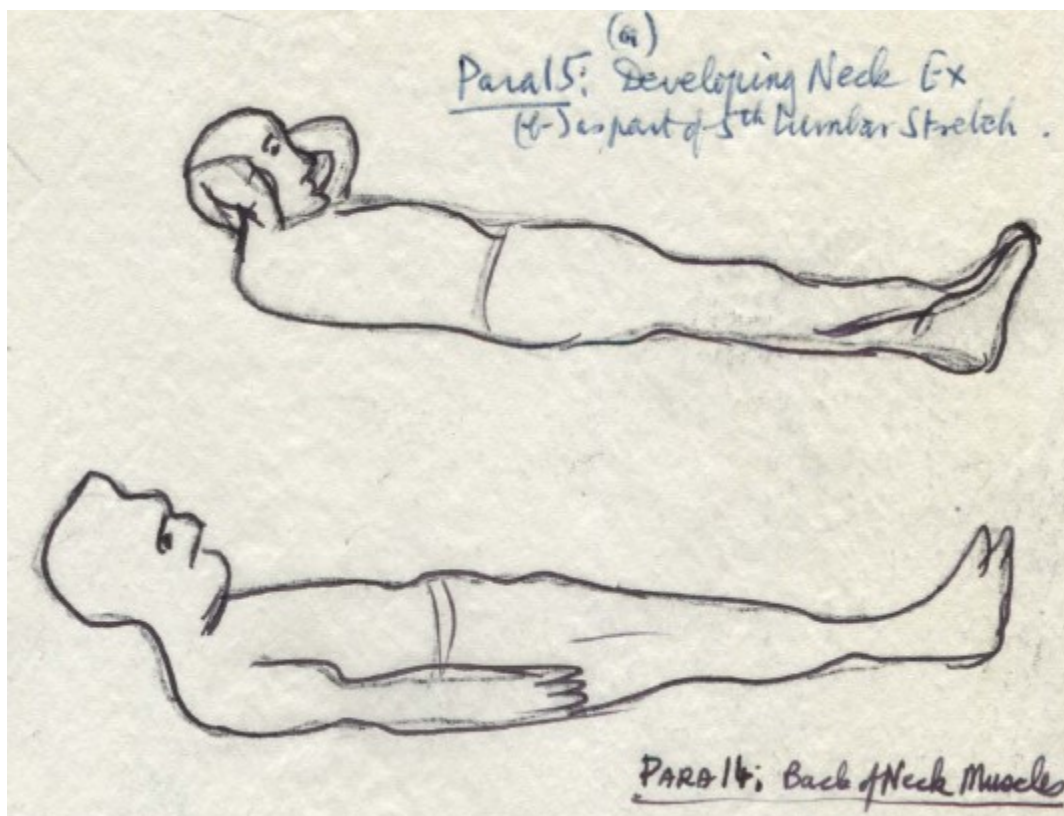 (a)
Para 15: Developing Neck Ex
(b) as part of 5th Lumbar Stretch.
PARA 14: Back of Neck Muscles